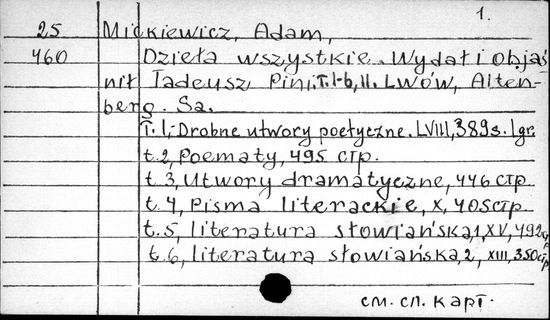 1.
25 Mickiewicz, Adam,
460 Dzieła wszystkie. Wydał i objaś
nił Tadeusz Pini. T. 1-6, 11. Lwów, Alten-
berg. Sa.
T. 1,- Drobne utwory poetyczne. LVIII, 389 s. 1 gr.
t. 2, Poematy, 495 стр.
t. 3, Utwory dramatyczne, 446 стр.
t. 4, Pisma literackie, X, 405 стр.
t. 5, literatura słowiańska, 1, XV, 492 стр.
t. 6, literatura słowiańska, 2, XIII, 350 стр.
см. сл. карт.